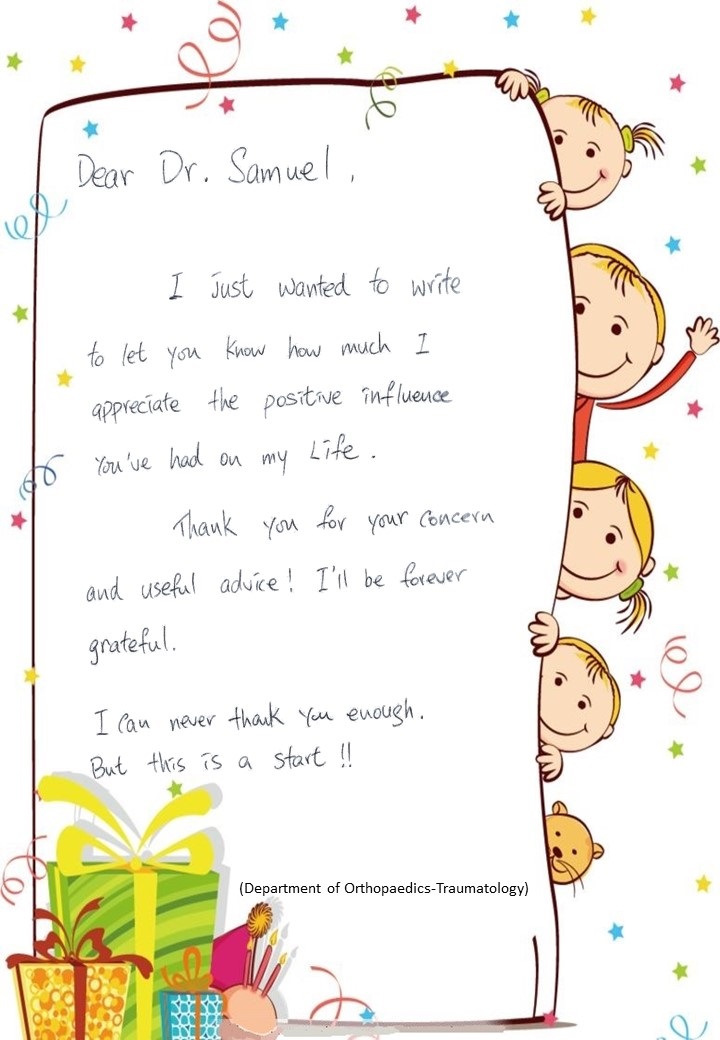 Dear Dr. Samuel,
I just wanted to write
to let you know how much I
appreciate the positive influence
You've had on my Life.
Thank you for your concern
and useful advice! I'll be forever
grateful.
I can never thank you enough.
But this is a start!!
(Department of Orthopaedics-Traumatology)